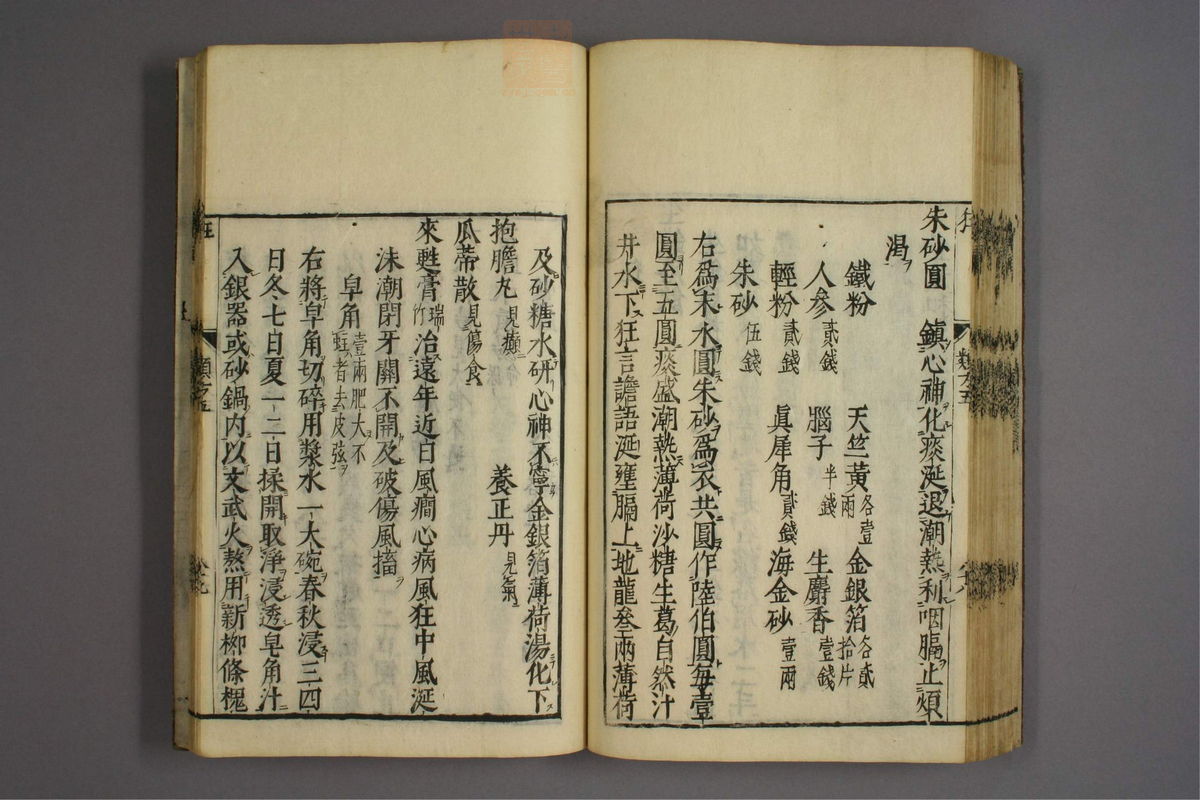 朱砂圓 鎮心神化痰涎退潮熱利咽膈止煩
渴
鐵粉 天竺黃各壹兩 金銀箔各貳拾片
人參貳錢 腦子半錢 生麝香壹錢
輕粉貳錢 眞犀角貳錢 海金砂壹兩
朱砂伍錢
右爲末水圓朱砂爲衣共圓作陸伯圓每壹
圓至五圓痰盛潮熱薄荷沙糖生葛自然汁
井水下狂言譫語涎壅膈上地龍叄兩薄荷
及砂糖水研心神不寧金銀箔薄荷湯化下
抱膽丸見癲 養正丹見氣
瓜蒂散見傷食
來甦膏瑞竹 治遠年近日風癎心病風狂中風涎
沫潮閉牙關不開及破傷風搐
皁角壹兩肥大不蛀者去皮弦
右將皁角切碎用漿水一大碗春秋浸三四
日冬七日夏一二日揉開取淨浸透皁角汁
入銀器或砂鍋內以文武火熬用新柳條槐